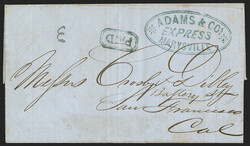 ADAMS & CO
EXPRESS
MARYSVILLE
PAID
3
Messrs Crosby & Dibblee
Battery St
San Francisco
Cal